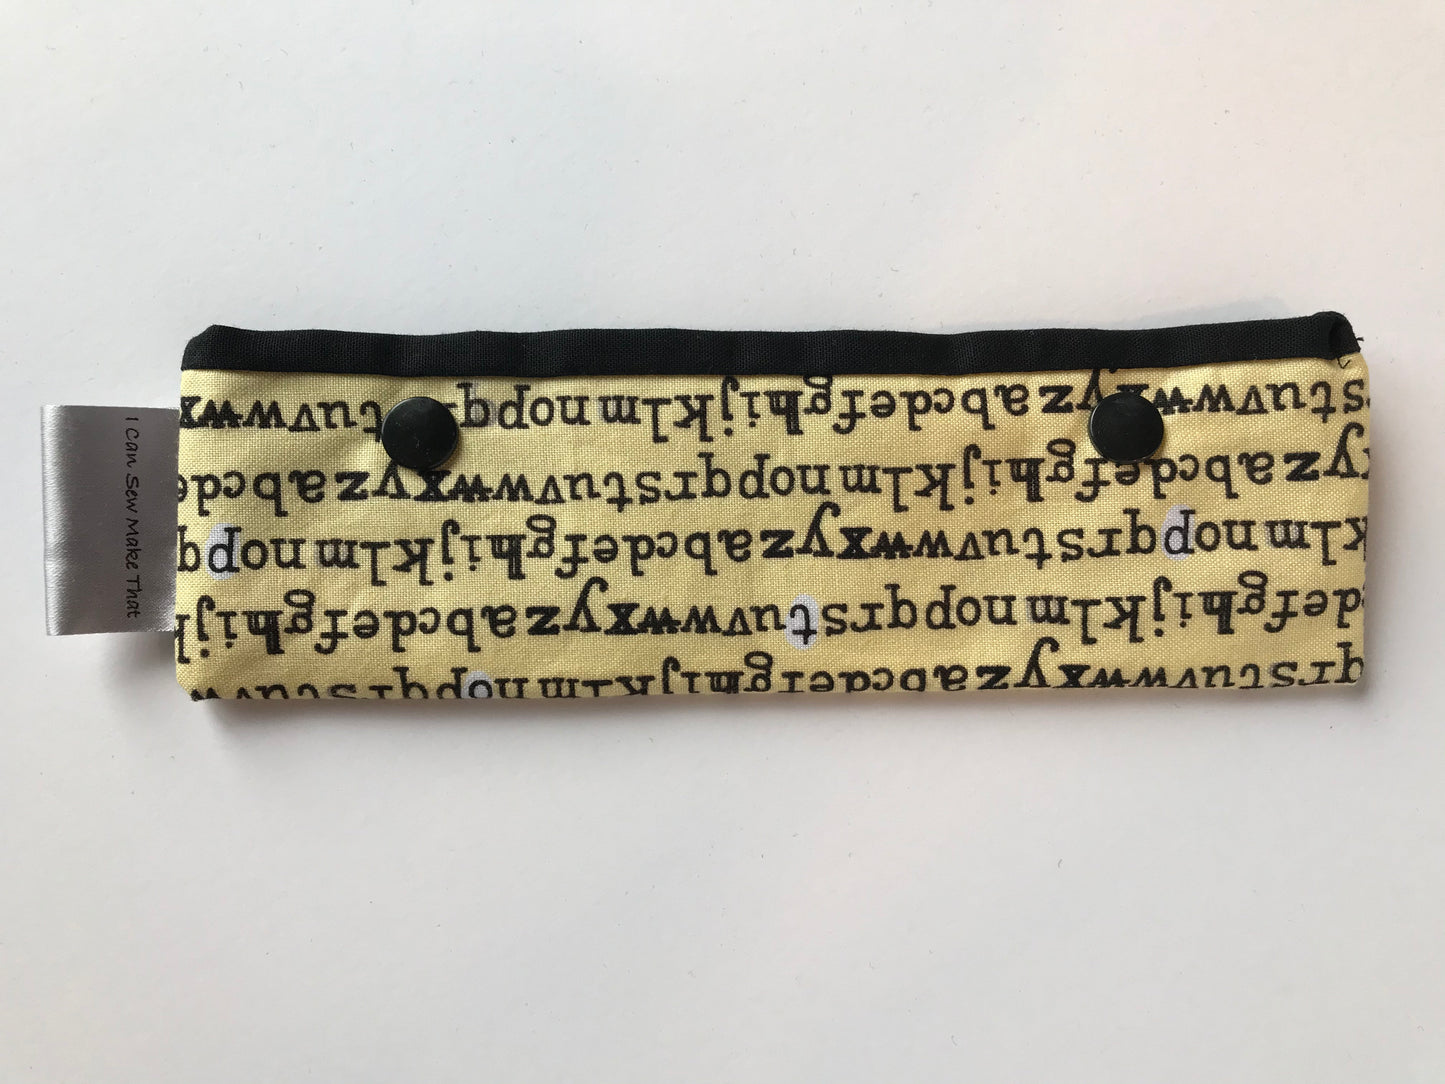 I Can Sew Make That
qrstuvwxyzabcdefghijklmnopqrstuvw
defghijklmnopqrstuvwxyzabcdefghijk
klmnopqrstuvwxyzabcdefghijklmnopq
xyzabcdefghijklmnopqrstuvwxyzabcde
stuvwxyzabcdefghijklmnopq tuvwx